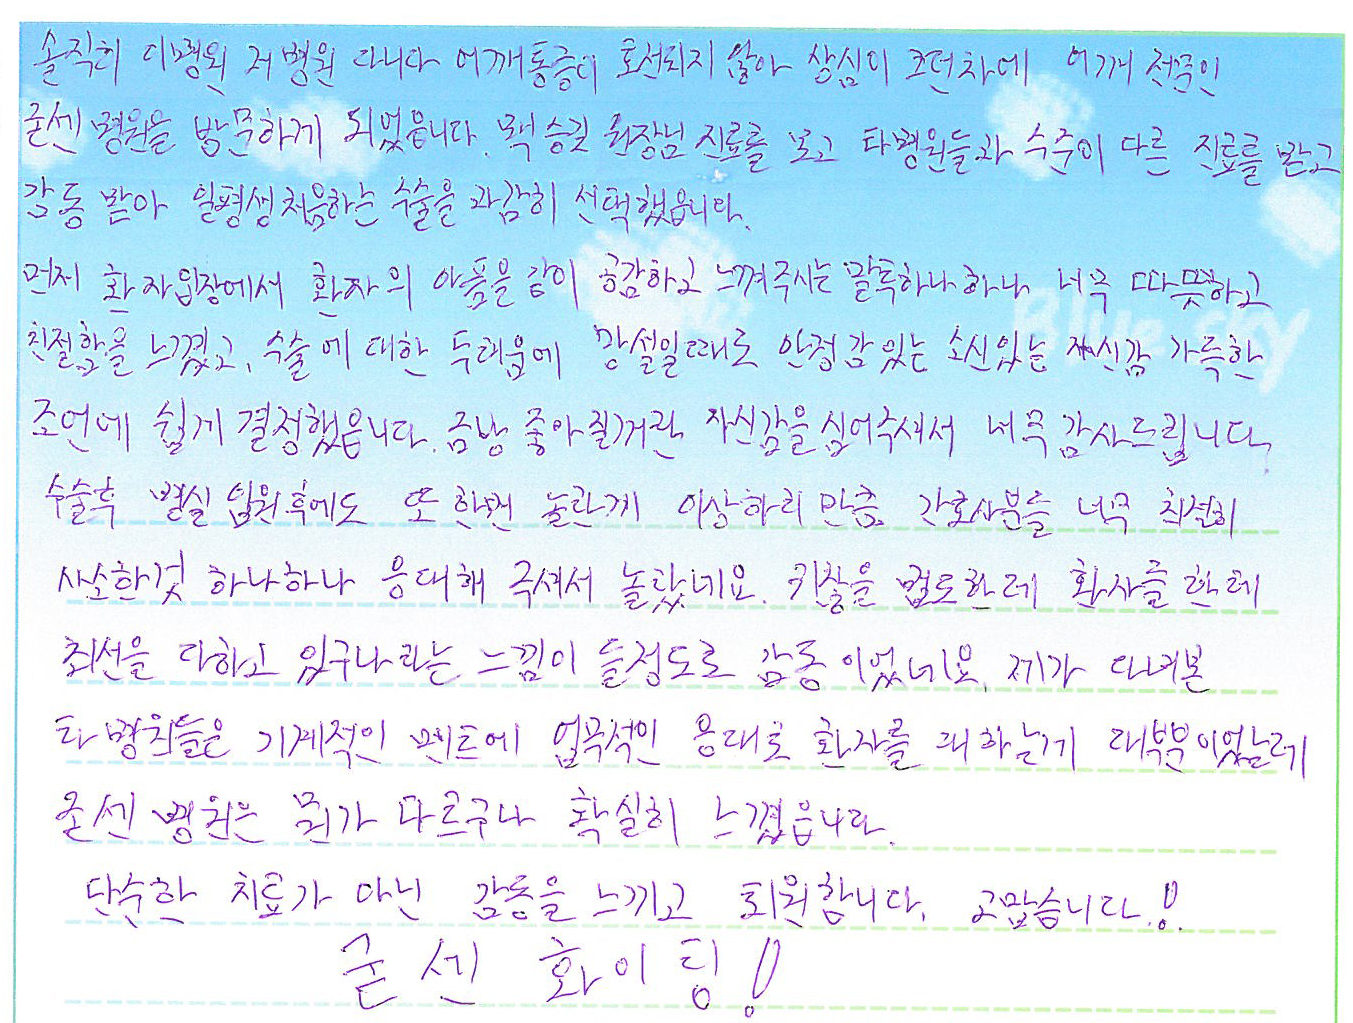 솔직히 이병원 저병원 다니다 어깨통증이 호전되지 않아 상심이 크던차에 어깨 전문인
굳센병원을 방문하게 되었읍니다. 백승길 원장님 진료를 보고 타병원들과 수준이 다른 진료를 받고
감동 받아 일평생처음하는 수술을 과감히 선택했읍니다.
먼저 환자입장에서 환자의 아픔을 같이 공감하고 느껴주시는 말투하나하나 너무 따뜻하고
친절함을 느꼈고, 수술에 대한 두려움에 망설일때도 안정감있는 소신있는 자신감 가득한
조언에 쉽게 결정했읍니다. 금방 좋아질거란 자신감을 심어주셔서 너무 감사드립니다.
수술후 병실 입원후에도 또 한번 놀란게 이상하리 만큼 간호사분들 너무 친절히
사소한것 하나하나 응대해 주셔서 놀랐네요. 귀찮을 법도한데 환자를 한테
최선을 다하고 있구나 라는 느낌이 들정도로 감동이었네요. 제가 다녀본
타 병원들은 기계적인 멘트에 업무적인 응대로 환자를 대하는게 대부분이었는데
굳센 병원은 뭔가 다르구나 확실히 느꼈읍니다.
단순한 치료가 아닌 감동을 느끼고 퇴원합니다. 고맙습니다.!
굳센 화이팅!
Blue sky